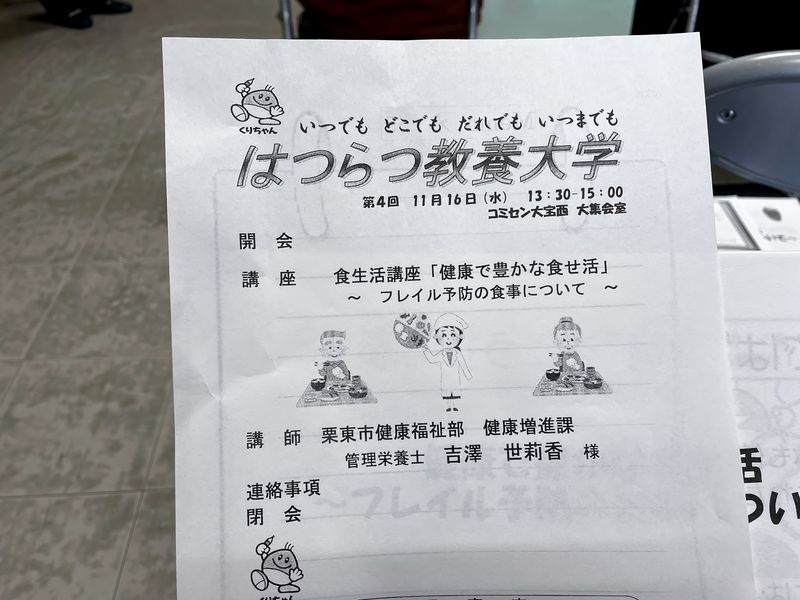 くりちゃん
いつでも どこでも だれでも いつまでも
はつらつ教養大学
第4回 11月16日(水) 13:30-15:00
コミセン大宝西 大集会室
開 会
講 座 食生活講座「健康で豊かな食せ活」
～ フレイル予防の食事について ～
講 師 栗東市健康福祉部 健康増進課
管理栄養士 吉澤 世莉香 様
連絡事項
閉 会
くりちゃん
活
つい